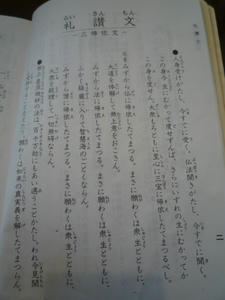 礼讃文
らいさんもん
三帰依文
●人身受けがたし、今すでに受く。仏法聞きがたし、今すでに聞く。
この身今生にむかって度せずんば、さらにいずれの生にむかってか
この身を度せん。大衆もろともに至心に三宝に帰依したてまつるべし。
みずから仏に帰依したてまつる。まさに願わくは衆生とともに、
大道を体解して無上意をおこさん。
みずから法に帰依したてまつる。まさに願わくは衆生とともに、
ふかく経蔵に入りて智慧海のごとくならん。
みずから僧に帰依したてまつる。まさに願わくは衆生とともに、
大衆を統理して一切無碍ならん。
●無上甚深微妙の法は、百千万劫にもあい遇うことかたし。われ今見聞
願わくは如来の真実義を解したてまつらん。
二